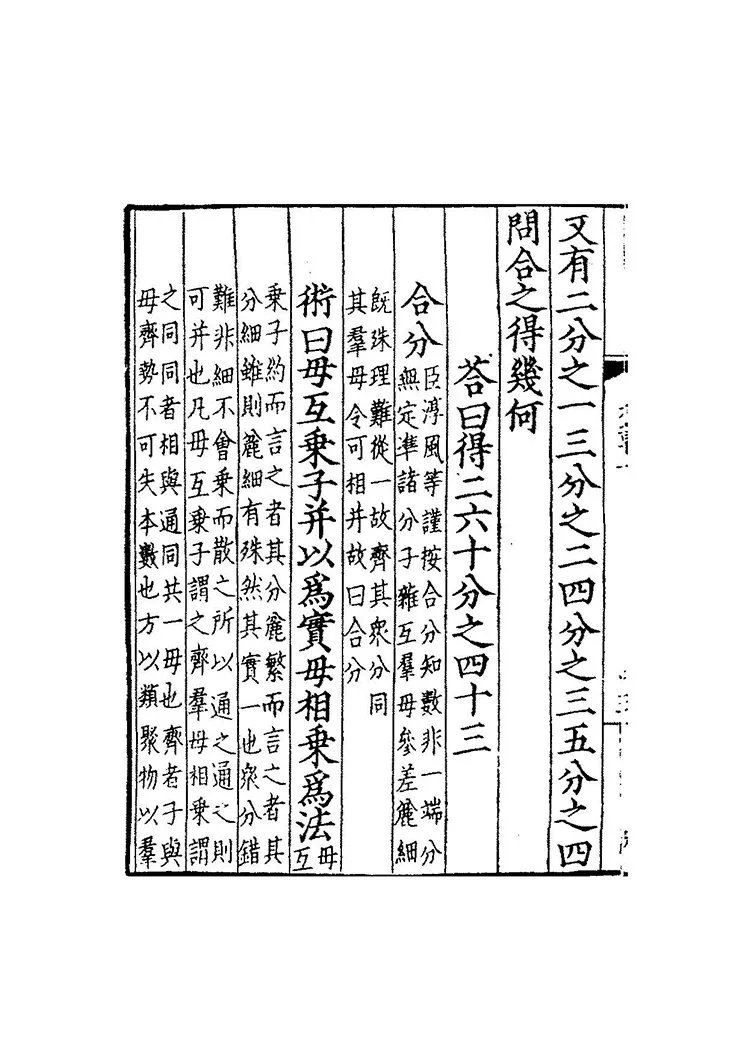 又有二分之一三分之二四分之三五分之四
問合之得幾何
荅曰得二六十分之四十三
合分
臣淳風等謹按合分知數非一端分
無定準諸分子雜互羣母參差麄細
既殊理難從一故齊其衆分同
其羣母令可相并故曰合分
術曰母互乗子并以爲實母相乗爲法
母
互
乗子約而言之者其分麄繁而言之者其
分細雖則麄細有殊然其實一也衆分錯
難非細不會乗而散之所以通之通之則
可并也凡母互乗子謂之齊羣母相乗謂
之同同者相與通同共一母也齊者子與
母齊勢不可失本數也方以類聚物以羣